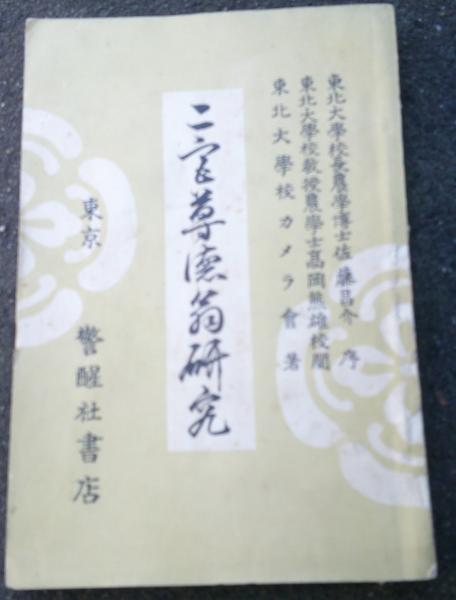 東北大學校長農學博士佐藤昌介 序
東北大學校教授農學士高岡熊雄校閲
東北大學校カメラ會 著
二宮尊德翁研究
東京
警醒社書店